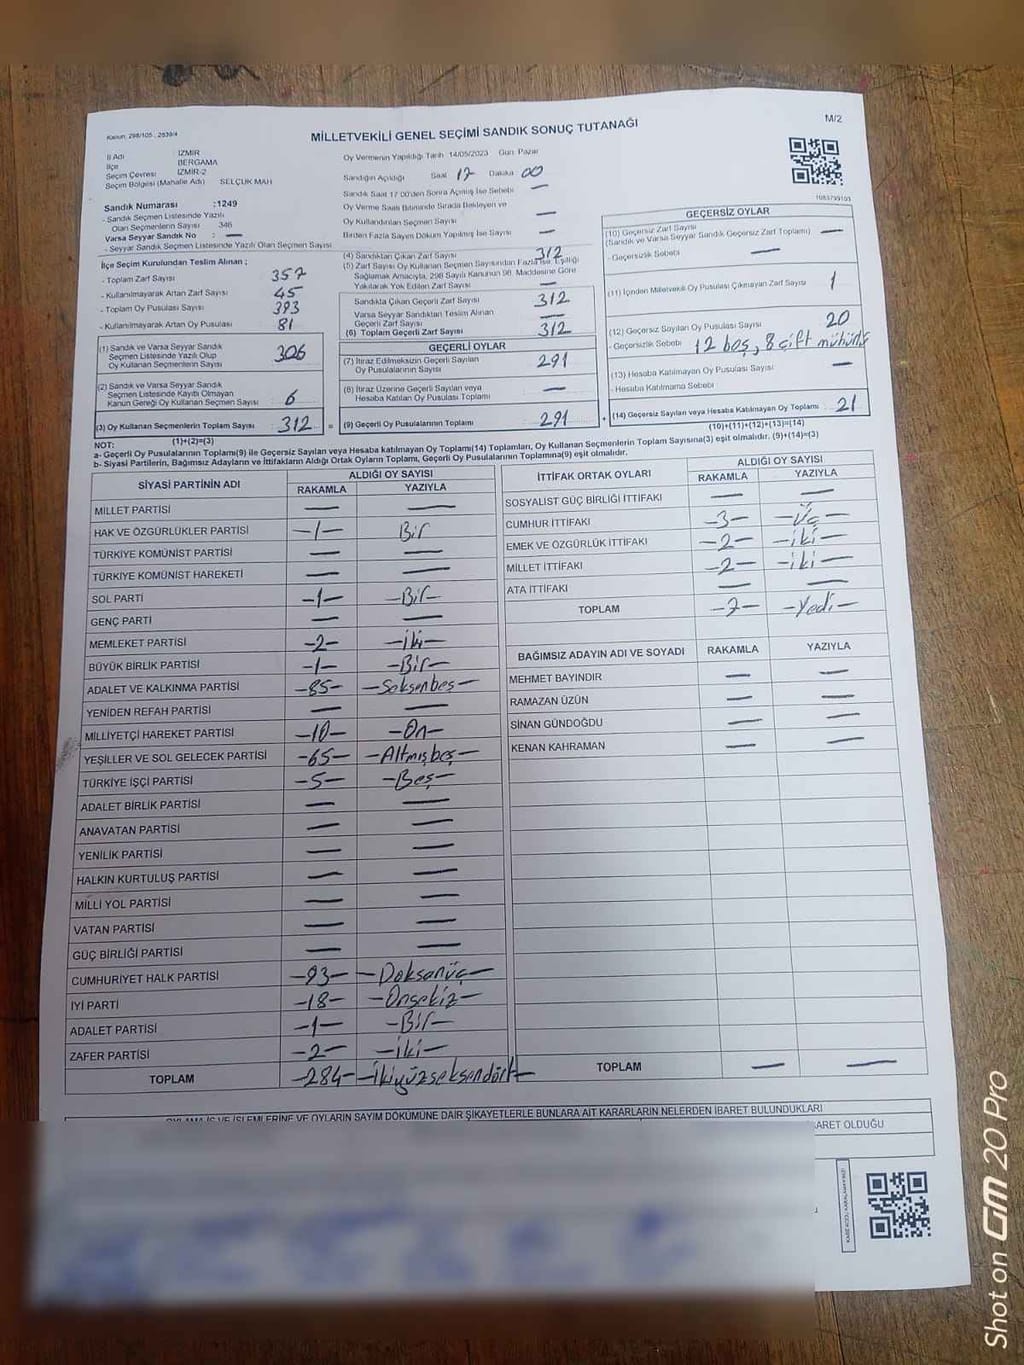 Kanun: 298/105 ; 2839/4
MİLLETVEKİLİ GENEL SEÇİMİ SANDIK SONUÇ TUTANAĞI
M/2
İl Adı : İZMİR
İlçe BERGAMA
Seçim Çevresi İZMİR-2
Seçim Bölgesi (Mahalle Adı) SELÇUK MAH
Sandık Numarası :1249
- Sandık Seçmen Listesinde Yazılı
Olan Seçmenlerin Sayısı 346
Varsa Seyyar Sandık No : —
- Seyyar Sandık Seçmen Listesinde Yazılı Olan Seçmen Sayısı
Oy Vermenin Yapıldığı Tarih 14/05/2023 Gün Pazar
Sandığın Açıldığı Saat 17 Dakika 00
Sandık Saat 17 00'den Sonra Açılmış İse Sebebi —
Oy Verme Saati Bitiminde Sırada Bekleyen ve
Oy Kullandırılan Seçmen Sayısı —
Birden Fazla Sayım Döküm Yapılmış İse Sayısı —
İlçe Seçim Kurulundan Teslim Alınan ;
- Toplam Zarf Sayısı 357
- Kullanılmayarak Artan Zarf Sayısı 45
- Toplam Oy Pusulası Sayısı 393
- Kullanılmayarak Artan Oy Pusulası 81
(1) Sandık ve Varsa Seyyar Sandık
Seçmen Listesinde Yazılı Olup
Oy Kullanan Seçmenlerin Sayısı 306
(2) Sandık ve Varsa Seyyar Sandık
Seçmen Listesinde Kayıtlı Olmayan
Kanun Gereği Oy Kullanan Seçmen Sayısı 6
(3) Oy Kullanan Seçmenlerin Toplam Sayısı 312 =
(1)+(2)=(3)
(4) Sandıktan Çıkan Zarf Sayısı 312
(5) Zarf Sayısı Oy Kullanan Seçmen Sayısından Fazla ise, Eşitliği
Sağlamak Amacıyla, 298 Sayılı Kanunun 98. Maddesine Göre
Yakılarak Yok Edilen Zarf Sayısı —
Sandıkta Çıkan Geçerli Zarf Sayısı 312
Varsa Seyyar Sandıktan Teslim Alınan
Geçerli Zarf Sayısı —
(6) Toplam Geçerli Zarf Sayısı 312
GEÇERLİ OYLAR
(7) İtiraz Edilmeksizin Geçerli Sayılan
Oy Pusulasının Sayısı 291
(8) İtiraz Üzerine Geçerli Sayılan veya
Hesaba Katılan Oy Pusulası Toplamı —
(9) Geçerli Oy Pusulalarının Toplamı 291 +
GEÇERSİZ OYLAR
(10) Geçersiz Zarf Sayısı
(Sandık ve Varsa Seyyar Sandık Geçersiz Zarf Toplamı) —
- Geçersizlik Sebebi —
(11) İçinden Milletvekili Oy Pusulası Çıkmayan Zarf Sayısı 1
(12) Geçersiz Sayılan Oy Pusulası Sayısı 20
- Geçersizlik Sebebi 12 boş, 8 çift mühürlü
(13) Hesaba Katılmayan Oy Pusulası Sayısı —
- Hesaba Katılmama Sebebi
(14) Geçersiz Sayılan veya Hesaba Katılmayan Oy Toplamı 21
(10)+(11)+(12)+(13)=(14)
NOT:
a- Geçerli Oy Pusulalarının Toplamı(9) ile Geçersiz Sayılan veya Hesaba katılmayan Oy Toplamı(14) Toplamları, Oy Kullanan Seçmenlerin Toplam Sayısına(3) eşit olmalıdır. (9)+(14)=(3)
b- Siyasi Partilerin, Bağımsız Adayların ve İttifakların Aldığı Ortak Oyların Toplamı, Geçerli Oy Pusulalarının Toplamına(9) eşit olmalıdır.
SİYASİ PARTİNİN ADI ALDIĞI OY SAYISI
RAKAMLA YAZIYLA
MİLLET PARTİSİ — —
HAK VE ÖZGÜRLÜKLER PARTİSİ -1- Bir
TÜRKİYE KOMÜNİST PARTİSİ — —
TÜRKİYE KOMÜNİST HAREKETİ — —
SOL PARTİ -1- -Bir-
GENÇ PARTİ — —
MEMLEKET PARTİSİ -2- -İki-
BÜYÜK BİRLİK PARTİSİ -1- -Bir-
ADALET VE KALKINMA PARTİSİ -85- -Seksenbeş-
YENİDEN REFAH PARTİSİ — —
MİLLİYETÇİ HAREKET PARTİSİ -10- -On-
YEŞİLLER VE SOL GELECEK PARTİSİ -65- -Altmışbeş-
TÜRKİYE İŞÇİ PARTİSİ -5- -Beş-
ADALET BİRLİK PARTİSİ — —
ANAVATAN PARTİSİ — —
YENİLİK PARTİSİ — —
HALKIN KURTULUŞ PARTİSİ — —
MİLLİ YOL PARTİSİ — —
VATAN PARTİSİ — —
GÜÇ BİRLİĞİ PARTİSİ — —
CUMHURİYET HALK PARTİSİ -93- -Doksanüç-
İYİ PARTİ -18- -Onsekiz-
ADALET PARTİSİ -1- -Bir-
ZAFER PARTİSİ -2- -İki-
TOPLAM -284- -İkiyüzseksendört-
İTTİFAK ORTAK OYLARI ALDIĞI OY SAYISI
RAKAMLA YAZIYLA
SOSYALİST GÜÇ BİRLİĞİ İTTİFAKI — —
CUMHUR İTTİFAKI -3- -Üç-
EMEK VE ÖZGÜRLÜK İTTİFAKI -2- -iki-
MİLLET İTTİFAKI -2- -iki-
ATA İTTİFAKI — —
TOPLAM -7- -Yedi-
BAĞIMSIZ ADAYIN ADI VE SOYADI RAKAMLA YAZIYLA
MEHMET BAYINDIR — —
RAMAZAN ÜZÜN — —
SİNAN GÜNDOĞDU — —
KENAN KAHRAMAN — —
TOPLAM — —
OYLAMA İŞ VE İŞLEMLERİNE VE OYLARIN SAYIM DÖKÜMÜNE DAİR ŞİKAYETLERLE BUNLARA AİT KARARLARIN NELERDEN İBARET BULUNDUKLARI
BARET OLDUĞU
Shot on GM 20 Pro